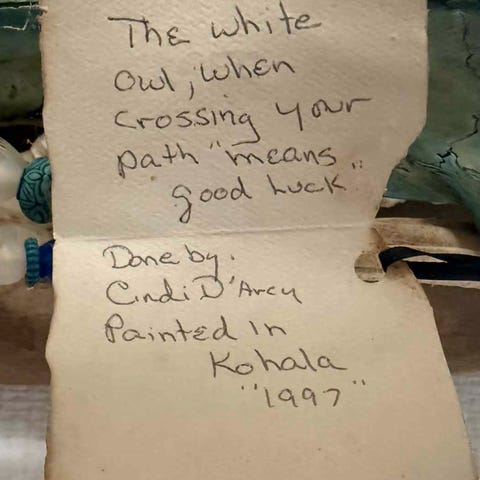 The white
owl, when
crossing your
path "means
good Luck"
Done by.
Cindi D'Arcy
Painted in
Kohala
"1997"